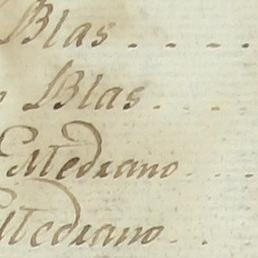 Blas . . . .
Blas . . .
Mediano . . .
Mediano . .